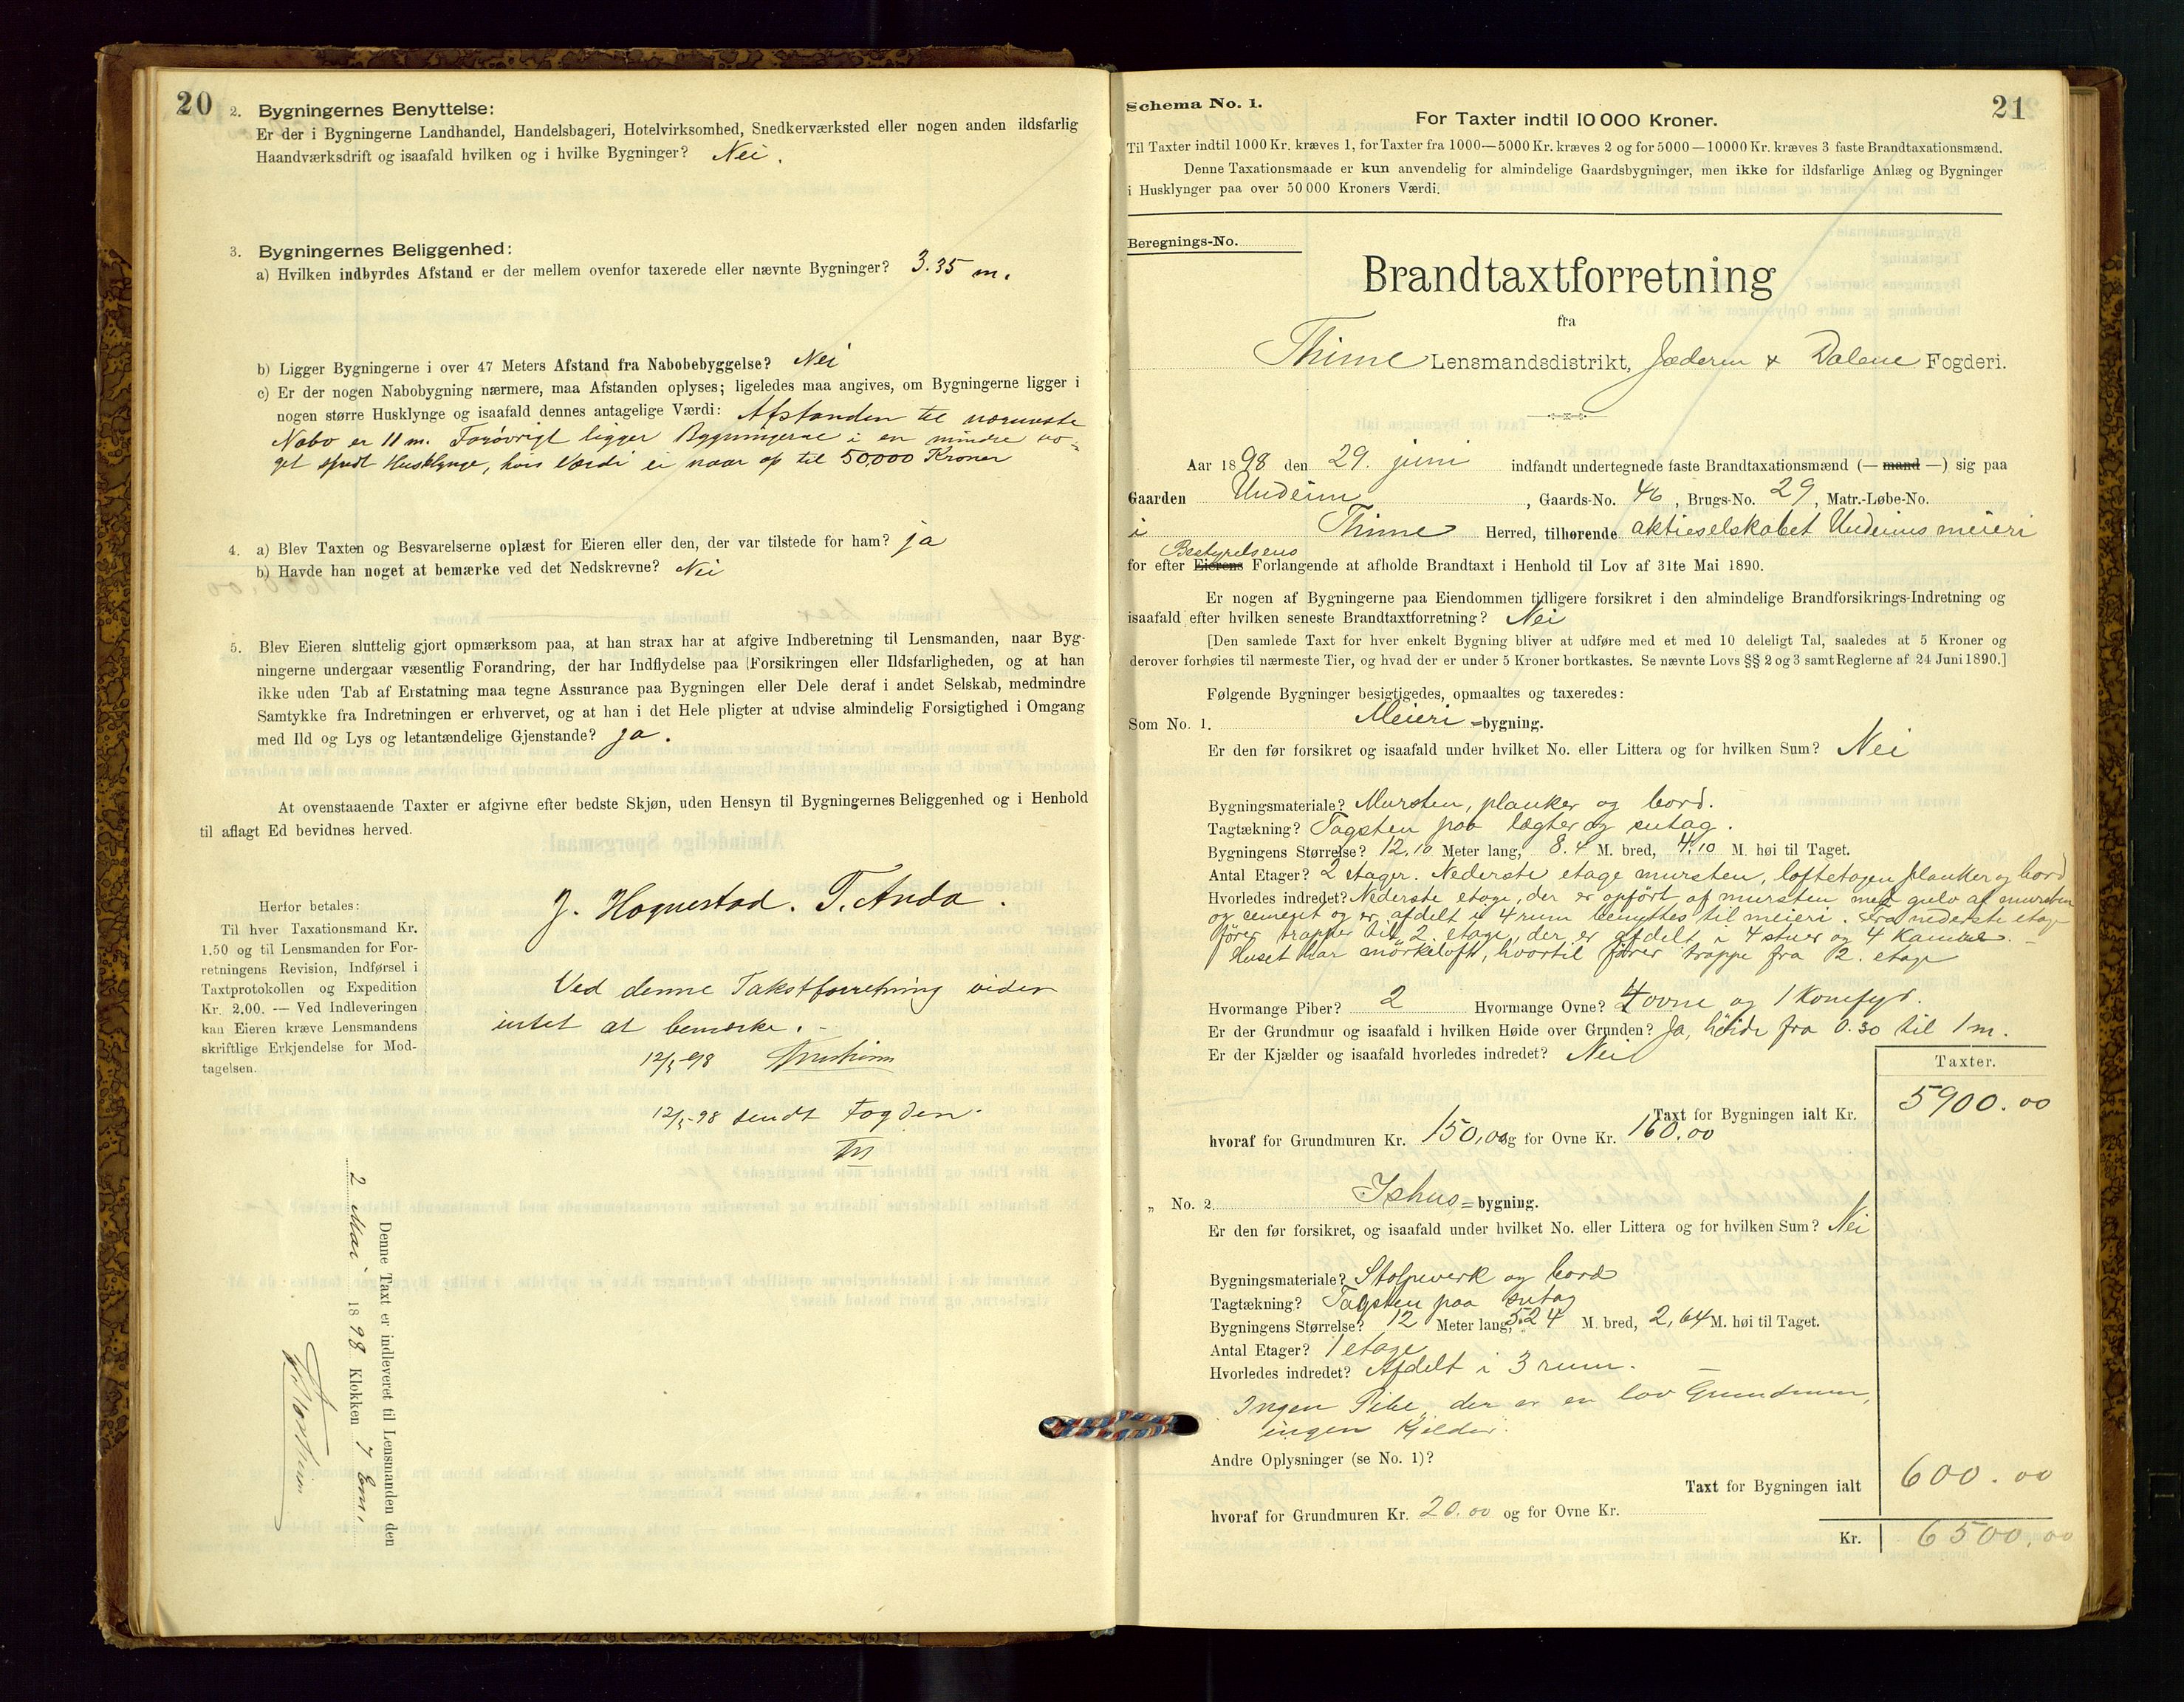 20
2. Bygningernes Benyttelse:
Er der i Bygningerne Landhandel, Handelsbageri, Hotelvirksomhed, Snedkerværksted eller nogen anden ildsfarlig
Haandværksdrift og isaafald hvilken og i hvilke Bygninger? Nei.
3. Bygningernes Beliggenhed:
a) Hvilken indbyrdes Afstand er der mellem ovenfor taxerede eller nævnte Bygninger? 3.35 m.
b) Ligger Bygningerne i over 47 Meters Afstand fra Nabobebyggelse? Nei
c) Er der nogen Nabobygning nærmere, maa Afstanden oplyses; ligeledes maa angives, om Bygningerne ligger i
nogen større Husklynge og isaafald dennes antagelige Værdi: Afstanden til nærmeste
Nabo er 11 m. Forøvrigt ligger Bygningerne i en mindre no-
get spredt Husklynge, hvis Værdi ei naar op til 50,000 Kroner
4. a) Blev Taxten og Besvarelserne oplæst for Eieren eller den, der var tilstede for ham? ja
b) Havde han noget at bemærke ved det Nedskrevne? Nei
5. Blev Eieren sluttelig gjort opmærksom paa, at han strax har at afgive Indberetning til Lensmanden, naar Byg-
ningerne undergaar væsentlig Forandring, der har Indflydelse paa Forsikringen eller Ildsfarligheden, og at han
ikke uden Tab af Erstatning maa tegne Assurance paa Bygningen eller Dele deraf i andet Selskab, medmindre
Samtykke fra Indretningen er erhvervet, og at han i det Hele pligter at udvise almindelig Forsigtighed i Omgang
med Ild og Lys og letantændelige Gjenstande? ja.
At ovenstaaende Taxter er afgivne efter bedste Skjøn, uden Hensyn til Bygningernes Beliggenhed og i Henhold
til aflagt Ed bevidnes herved.
J. Hognestad. T. Anda.
Herfor betales:
Til hver Taxationsmand Kr.
1.50 og til Lensmanden for For-
retningens Revision, Indførsel i
Taxtprotokollen og Expedition
Kr. 2.00. — Ved Indleveringen
kan Eieren kræve Lensmandens
skriftlige Erkjendelse for Mod-
tagelsen.
Ved denne Takstforretning vides
intet at bemærke.
12/5-98
12/5-98 sendt Fogden.
Denne Taxt er indleveret til Lensmanden den
2 Mai 1898 Klokken 7 Em.
Schema No. 1.
21
For Taxter indtil 10 000 Kroner.
Til Taxter indtil 1000 Kr. kræves 1, for Taxter fra 1000—5000 Kr. kræves 2 og for 5000—10000 Kr. kræves 3 faste Brandtaxationsmænd.
Denne Taxationsmaade er kun anvendelig for almindelige Gaardsbygninger, men ikke for ildsfarlige Anlæg og Bygninger
i Husklynger paa over 50 000 Kroners Værdi.
Beregnings-No.
Brandtaxtforretning
fra
Thime Lensmandsdistrikt, Jæderen & Dalene Fogderi.
Aar 1898 den 29. juni indfandt undertegnede faste Brandtaxationsmænd (— mand —) sig paa
Gaarden Undeim, Gaards-No. 46, Brugs-No. 29, Matr.-Løbe-No.
i Thime Herred, tilhørende aktieselskabet Undeims meieri
Bestyrelsens
for efter Eierens Forlangende at afholde Brandtaxt i Henhold til Lov af 31te Mai 1890.
Er nogen af Bygningerne paa Eiendommen tidligere forsikret i den almindelige Brandforsikrings-Indretning og
isaafald efter hvilken seneste Brandtaxtforretning? Nei
[Den samlede Taxt for hver enkelt Bygning bliver at udføre med et med 10 deleligt Tal, saaledes at 5 Kroner og
derover forhøies til nærmeste Tier, og hvad der er under 5 Kroner bortkastes. Se nævnte Lovs §§ 2 og 3 samt Reglerne af 24 Juni 1890.]
Følgende Bygninger besigtigedes, opmaaltes og taxeredes:
Som No. 1. Meieri=bygning.
Er den før forsikret og isaafald under hvilket No. eller Littera og for hvilken Sum? Nei
Bygningsmateriale? Mursten, planker og bord.
Tagtækning? Tagsten paa lægter og sutag.
Bygningens Størrelse? 12.10 Meter lang, 8.4 M. bred, 4.10 M. høi til Taget.
Antal Etager? 2 etager. Nederste etage mursten, loftetagen planker og bord
Hvorledes indredet? Nederste etage, der er opført af mursten med gulv af mursten
og cement og er afdelt i 4 rum benyttes til meieri. Fra nederste etage
fører trapper til 2. etage, der er afdelt i 4 stuer og 4 Kamre. —
Huset har mørkeloft, hvortil fører trappe fra 2. etage
Hvormange Piber? 2 Hvormange Ovne? 4 ovne og 1 Komfyr.
Er der Grundmur og isaafald i hvilken Høide over Grunden? Ja, høide fra 0.30 til 1 m.
Er der Kjælder og isaafald hvorledes indredet? Nei
Taxter.
Taxt for Bygningen ialt Kr. 5900.00
hvoraf for Grundmuren Kr. 150,00 og for Ovne Kr. 160.00
„ No. 2 Ishus=bygning.
Er den før forsikret, og isaafald under hvilket No. eller Littera og for hvilken Sum? Nei
Bygningsmateriale? Stolpeverk og bord
Tagtækning? Tagsten paa sutag
Bygningens Størrelse? 12 Meter lang, 5.24 M. bred, 2,64 M. høi til Taget.
Antal Etager? 1 etage
Hvorledes indredet? Afdelt i 3 rum. —
Ingen Pibe, der er en lav Grundmur,
ingen Kjelder.
Andre Oplysninger (se No. 1)?
Taxt for Bygningen ialt 600.00
hvoraf for Grundmuren Kr. 20.00 og for Ovne Kr.
Kr. 6500.00